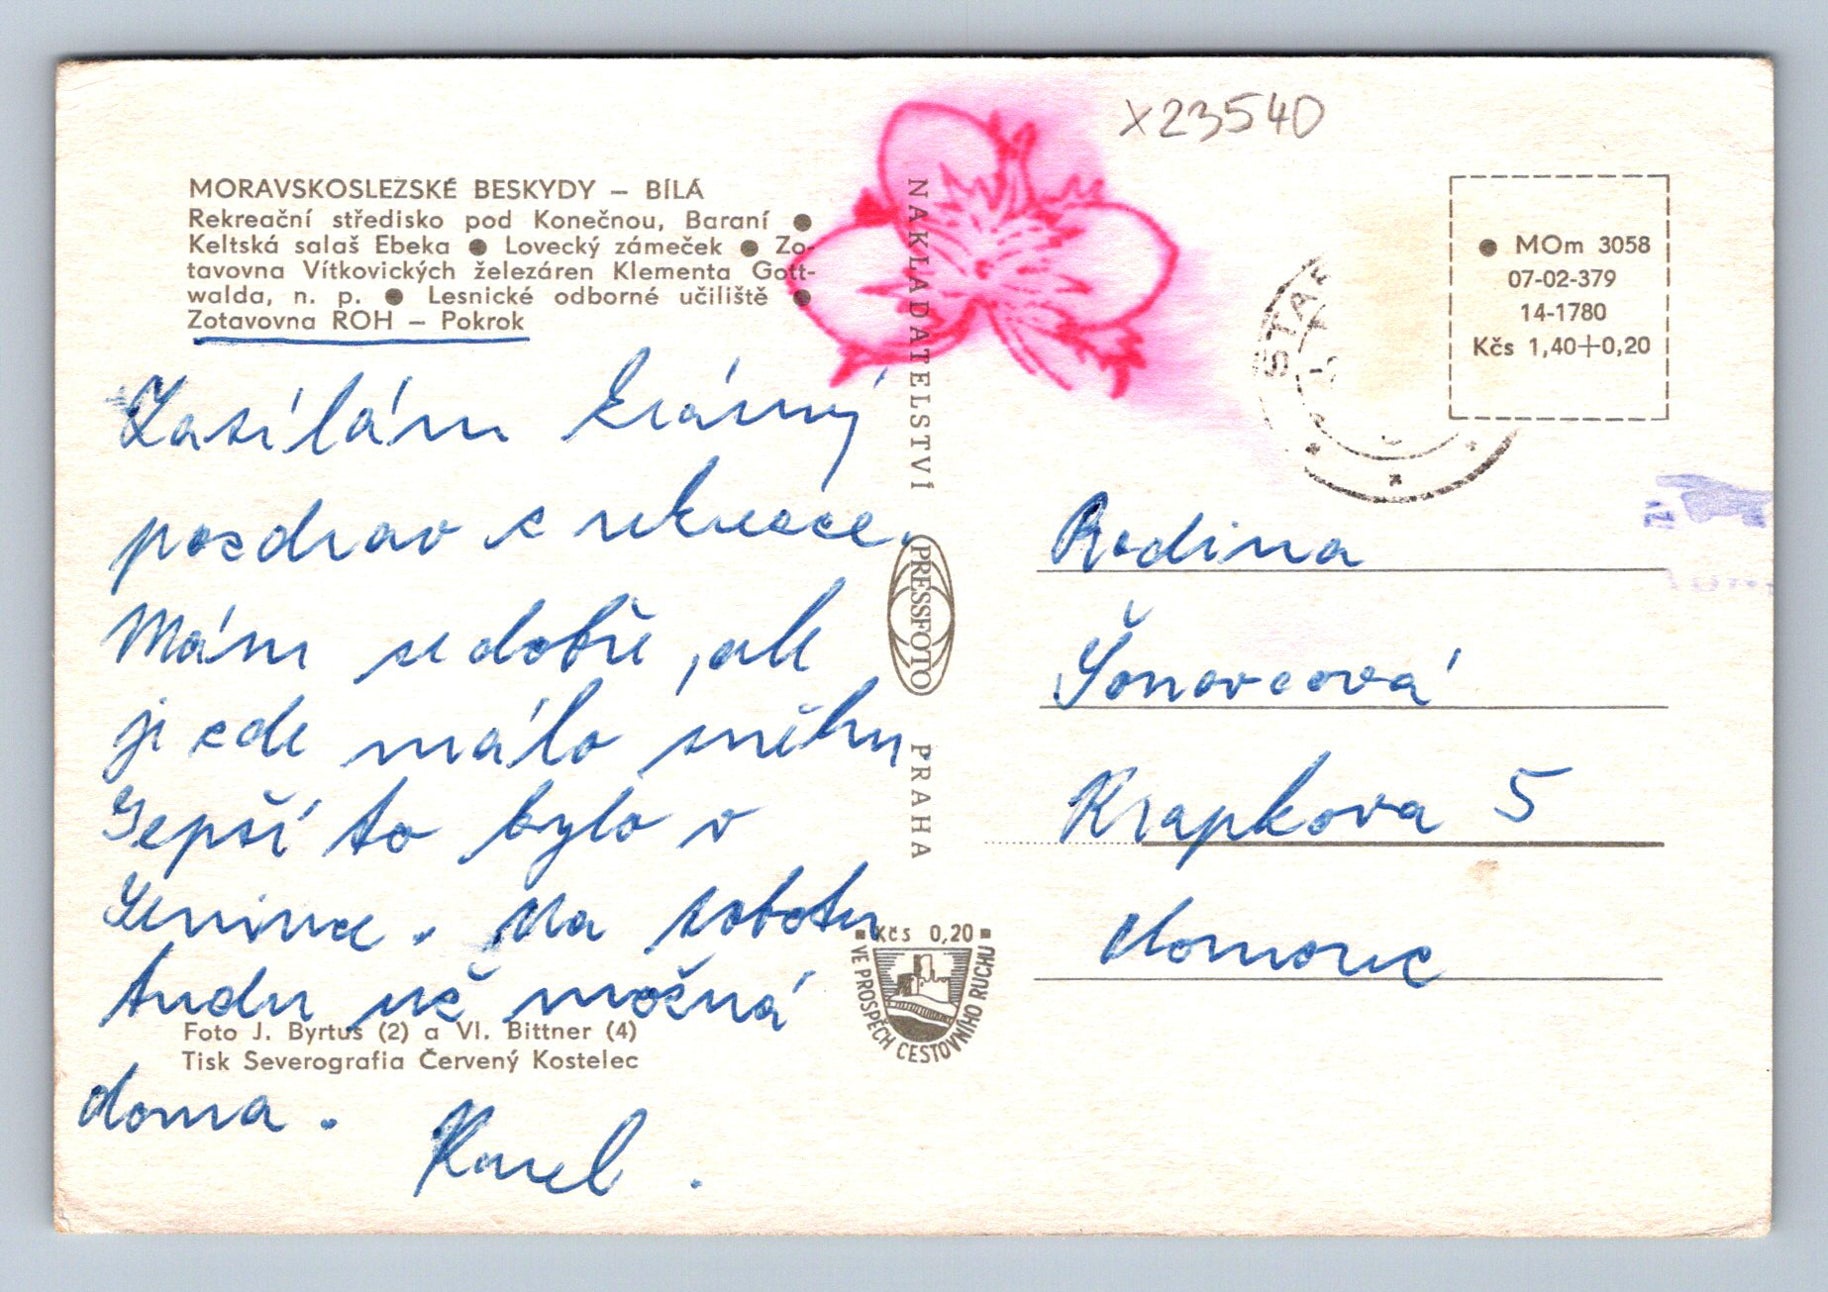 x23540
MORAVSKOSLEZSKÉ BESKYDY – BÍLÁ
Rekreační středisko pod Konečnou, Baraní ●
Keltská salaš Ebeka ● Lovecký zámeček ● Zo-
tavovna Vítkovických železáren Klementa Gott-
walda, n. p. ● Lesnické odborné učiliště ●
Zotavovna ROH – Pokrok
Zasílám krásný
pozdrav z rekreace.
Mám se dobře, ale
je zde málo sněhu.
Lepší to bylo v
Na sobotu
budu už možná
doma.
Karel.
Foto J. Byrtus (2) a Vl. Bittner (4)
Tisk Severografia Červený Kostelec
NAKLADATELSTVÍ
PRESSFOTO
PRAHA
Kčs 0,20
VE PROSPĚCH CESTOVNÍHO RUCHU
● MOm 3058
07-02-379
14-1780
Kčs 1,40+0,20
Rodina
Šonovcová
Krapkova 5
Olomouc